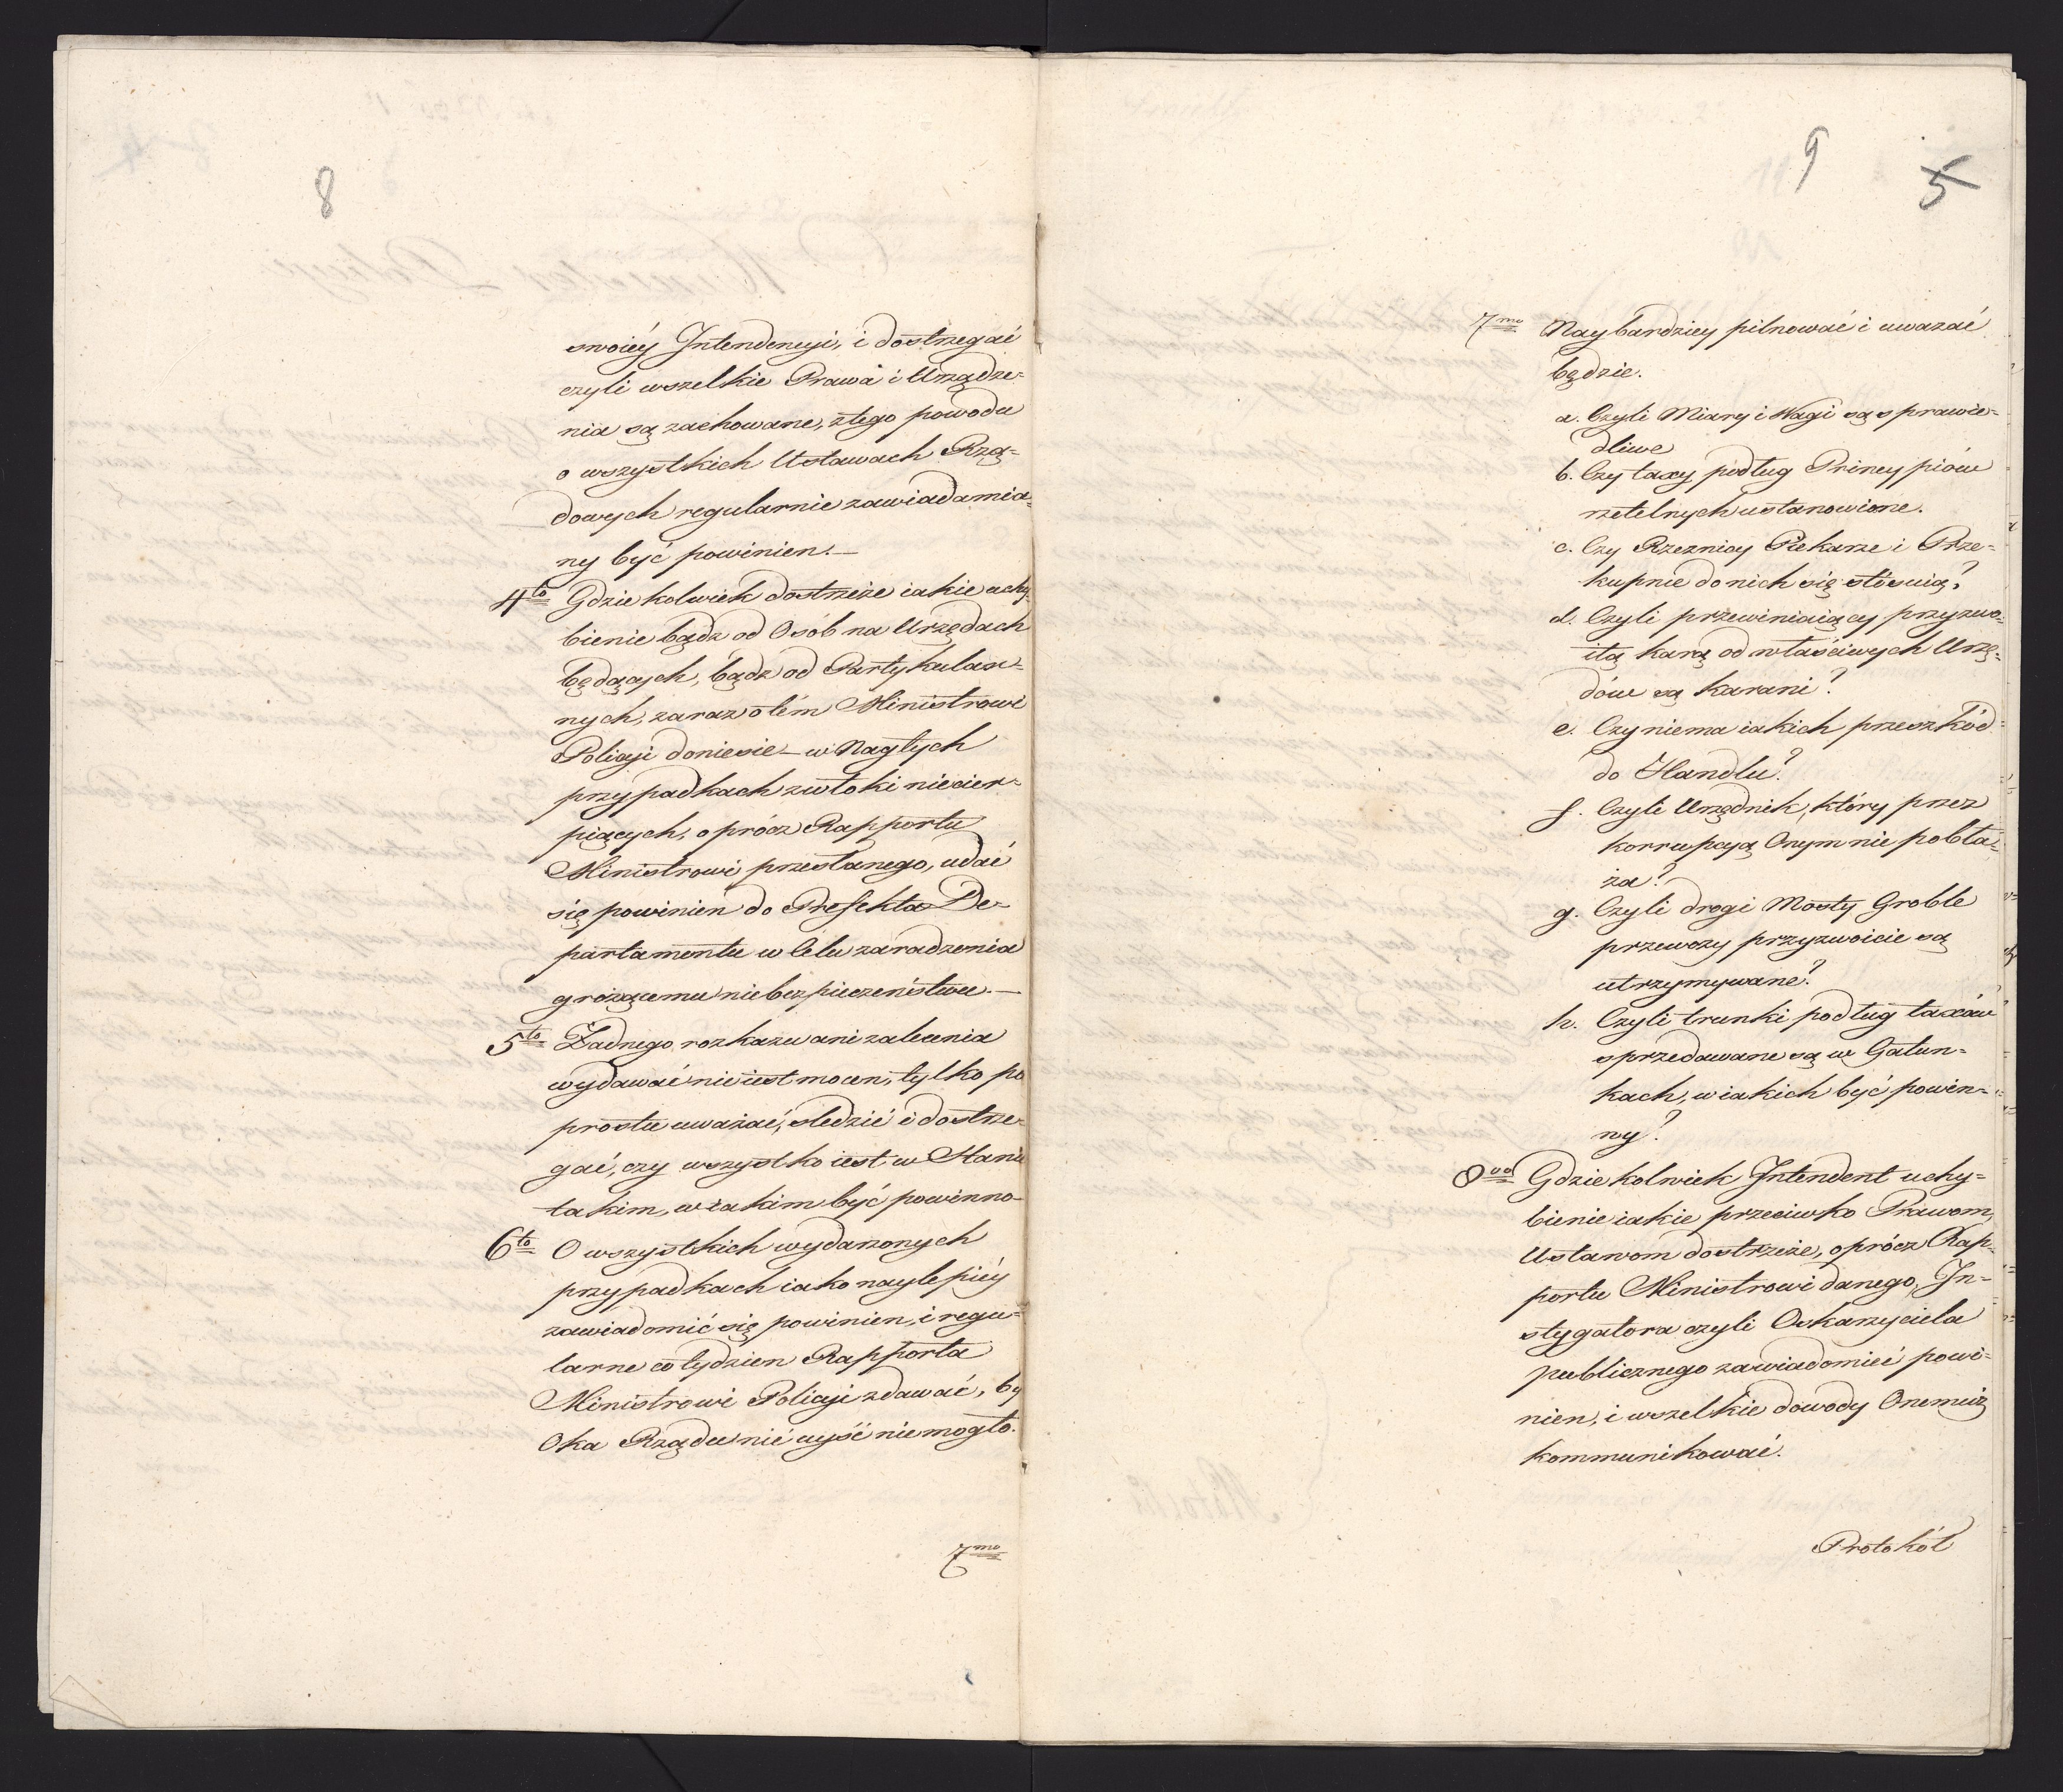 8
swoiéy Intendencyi, i dostrzegać
czyli wszelkie Prawa i Urządze=
nia są zachowane, ztego powodu
o wszystkich Ustawach Rzą=
dowych regularnie zawiadamia=
ny być powinien.—
4to Gdziekolwiek dostrzeże iakie uchy-
bienie bądz od Osób na Urzędach
będących, bądz od Partykular=
nych, zaraz otém Ministrowi
Policyi doniesie — w Nagłych
przypadkach zwłoki niecier=
piących, oprócz Rapportu
Ministrowi przesłanego, udać
się powinien do Prefekta De-
partamentu w Celu zaradzenia
grożącemu niebezpieczeństwu.—
5to Żadnego rozkazu ani zalecenia
wydawać nie iest mocen, tylko po
prostu uważać, sledzić i dostrze-
gać, czy wszystko iest w Stanie
takim, w iakim być powinno—
6to O wszystkich wydarzonych
przypadkach iako naylepiéy
zawiadomić się powinien, i regu=
larne co tydzien Rapporta
Ministrowi Policyi zdawać, by
Oka Rządu nić uyść nie mogło.
7mo
9
5
7mo Naybardziey pilnować i uwazać
będzie.
a. Czyli Miary i Wagi są sprawie=
dliwe
b. Czy taxy podług Princypiów
rzetelnych ustanowione.
c. Czy Rzeznicy Piekarze i Prze=
kupnie do nich się stósuią?
d. Czyli przewiniaiący przyzwo=
itą karą od właściwych Urzę=
dów są karani?
e. Czy niema iakich przeszkód
do Handlu?
f. Czyli Urzędnik, który przez
korrupcyą Onym nie pobła=
ża?
g. Czyli drogi Mosty Groble
przewozy przyzwoicie są
utrzymywane?
h. Czyli trunki podług taxów
sprzedawane są w Gatun=
kach, w iakich być powin=
ny?
8vo Gdziekolwiek Intendent uchy=
bienie iakie przeciwko Prawom,
Ustawom dostrzeże, oprócz Rap=
portu Ministrowi danego, In=
stygatora czyli Oskarzyciela
publicznego zawiadomić powi=
nien, i wszelkie dowody Onemuż
kommunikować.
Protokół